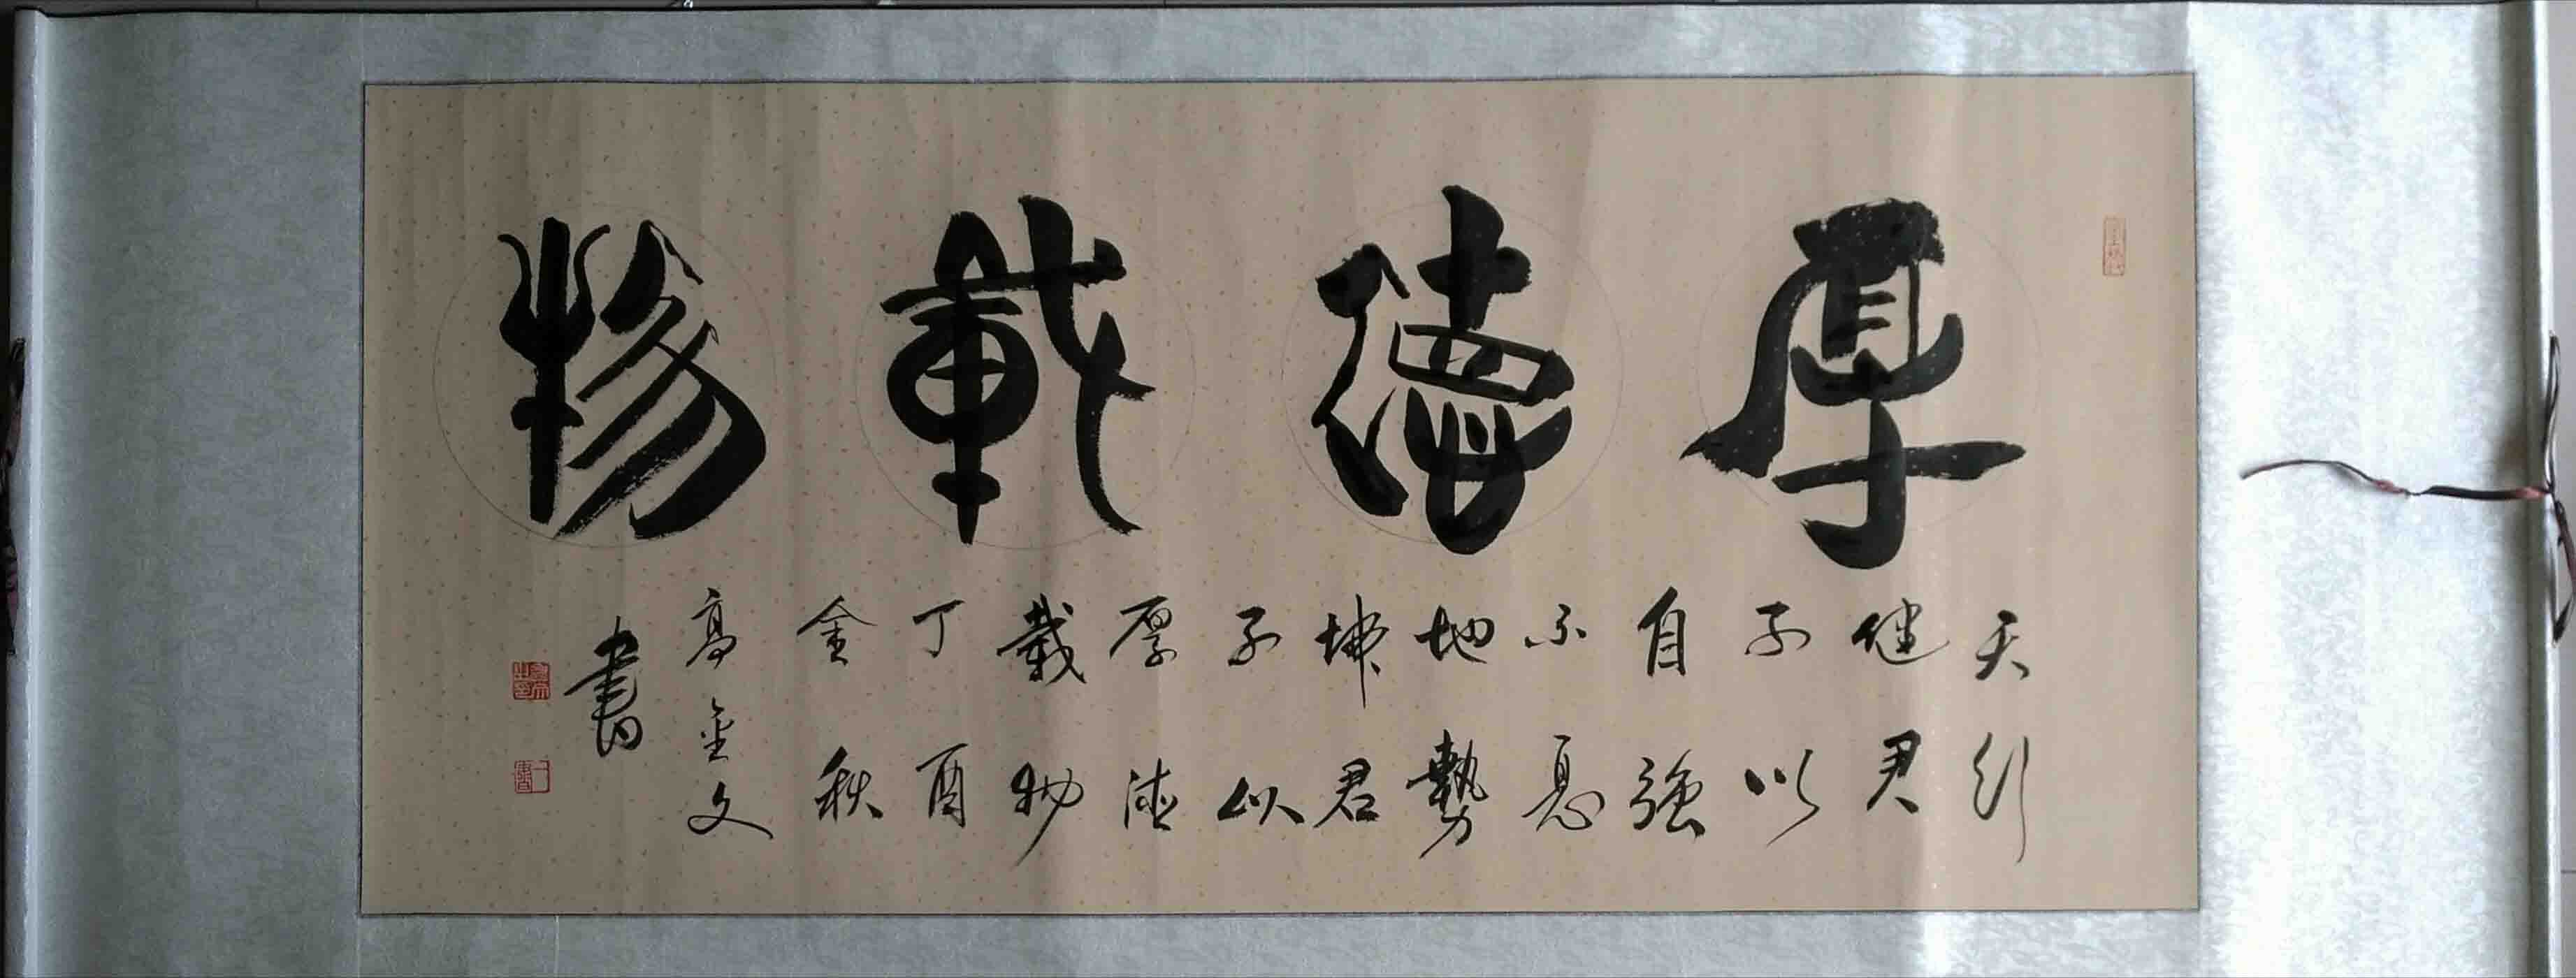 厚德載物
天行
健君
子以
自強
不息
地勢
坤君
子以
厚德
載物
丁酉
金秋
高金文
書